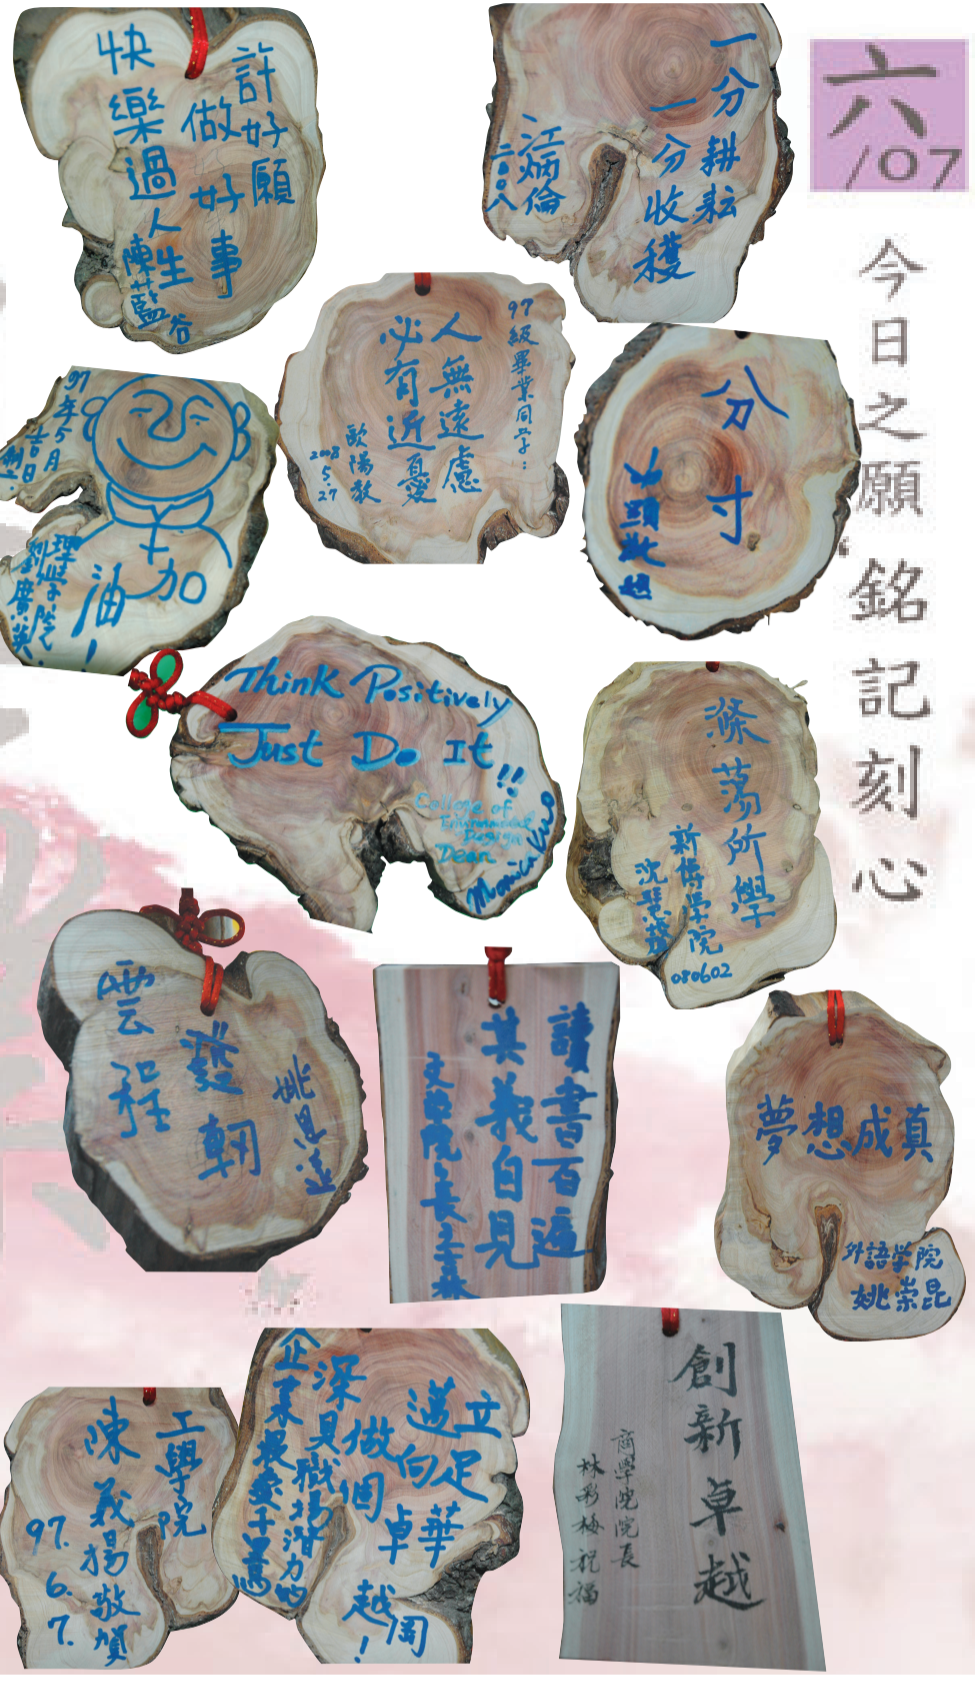 六/07
今日之願 銘記刻心
許好願
做好事
快樂過人生
陳藍谷
一分耕耘
一分收穫
江炳倫
二00八
97級畢業同學:
人無遠慮
必有近憂
歐陽教
2008
5.27
分寸
97年5月
吉日
加油!
理學院
劉廣英
Think Positively
Just Do It!!
College of
Environmental
Design
Dean
Monica Kuo
滌蕩所學
新傳學院
沈慧聲
080602
雲程
發軔
讀書百遍
其義自見
文學院院長王
夢想成真
外語學院
姚崇昆
工學院
陳義揚敬賀
97.
6.
7.
立足華岡
邁向卓越!
做個
深具職場潛力的
企業最愛千里馬
創新卓越
商學院院長
林彩梅祝福